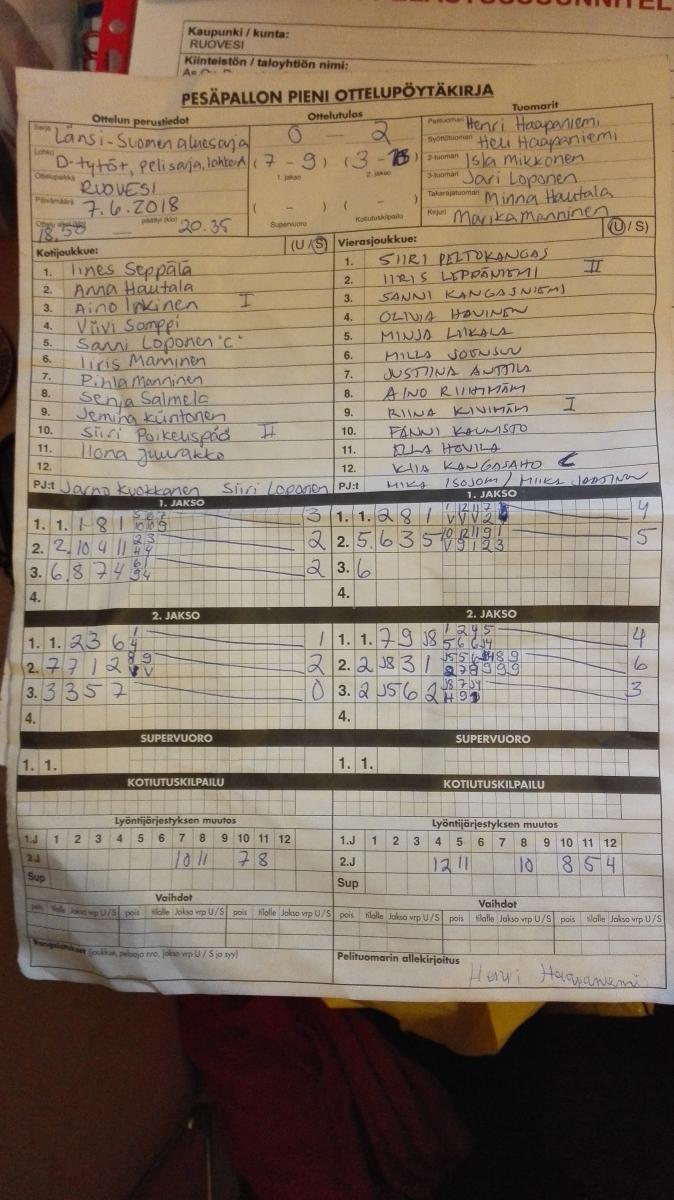 Kaupunki / kunta:
RUOVESI
Kiinteistön / taloyhtiön nimi:
PESÄPALLON PIENI OTTELUPÖYTÄKIRJA
Ottelun perustiedot
Ottelutulos
Tuomarit
Sarja Länsi-Suomen aluesarja
0 — 2
Pelituomari Henri Haapaniemi
Lohko D-tytöt, pelisarja, lohko A
(7 - 9) (3 - )
1. jakso 2. jakso
Syöttötuomari Heli Haapaniemi
Ottelupaikka RUOVESI
2-tuomari Isla Mikkonen
3-tuomari Jari Loponen
Päivämäärä 7.6.2018
( - ) ( - )
Supervuoro Kotiutuskilpailu
Takarajatuomari Minna Hautala
18.50 — päättyi (klo) 20.35
Kirjuri Marika Manninen
Kotijoukkue: (U / S)
1. Iines Seppälä
2. Anna Hautala
3. Aino Inkinen I
4. Viivi Somppi
5. Sanni Loponen "C"
6. Iiris Manninen
7. Pihla Manninen
8. Senja Salmela
9. Jemina Kiintonen
10. Siiri Poikelispää II
11. Ilona Juurakko
12.
PJ:t Jarno Kuokkanen Siiri Loponen
Vierasjoukkue: (U / S)
1. SIIRI PELTOKANGAS
2. IIRIS LEPPÄNIEMI II
3. SANNI KANGASNIEMI
4. OLIVIA HAVINEN
5. MINJA LIIKALA
6. MILLA JOONSUU
7. JUSTIINA ANTTILA
8. AINO RIIHIMÄKI
9. RIINA KIVIMÄKI I
10. FANNI KAUNISTO
11. ELLA HOVILA
12. KIIA KANGASAHO C
PJ:t MIKA ISOJOKI /
1. JAKSO
1. 1. 1 8 1 5 6 7 10 10 9 3
2. 2 10 4 11 2 3 4 4 2
3. 6 8 7 4 6 1 9 4 2
4.
1. JAKSO
1. 1. 2 8 1 4
2. 5 6 3 5 5
3. 6
4.
2. JAKSO
1. 1. 2 3 6 1 4 1
2. 7 7 1 2 8 9 V V 2
3. 3 3 5 7 0
4.
2. JAKSO
1. 1. 7 9 J8 1 2 4 5 5 6 6 J4 4
2. 2 J8 3 1 6
3. 2 J5 6 2 3
4.
SUPERVUORO
1. 1.
SUPERVUORO
1. 1.
KOTIUTUSKILPAILU
KOTIUTUSKILPAILU
Lyöntijärjestyksen muutos
1.J 1 2 3 4 5 6 7 8 9 10 11 12
2.J 10 11 7 8
Sup
Lyöntijärjestyksen muutos
1.J 1 2 3 4 5 6 7 8 9 10 11 12
2.J 12 11 10 8 5 4
Sup
Vaihdot
pois tilalle Jakso vrp U / S pois tilalle Jakso vrp U / S pois tilalle Jakso vrp U / S
Vaihdot
pois tilalle Jakso vrp U / S pois tilalle Jakso vrp U / S pois tilalle Jakso vrp U / S
Rangaistukset (joukkue, pelaaja nro, jakso vrp U / S ja syy)
Pelituomarin allekirjoitus
Henri Haapaniemi